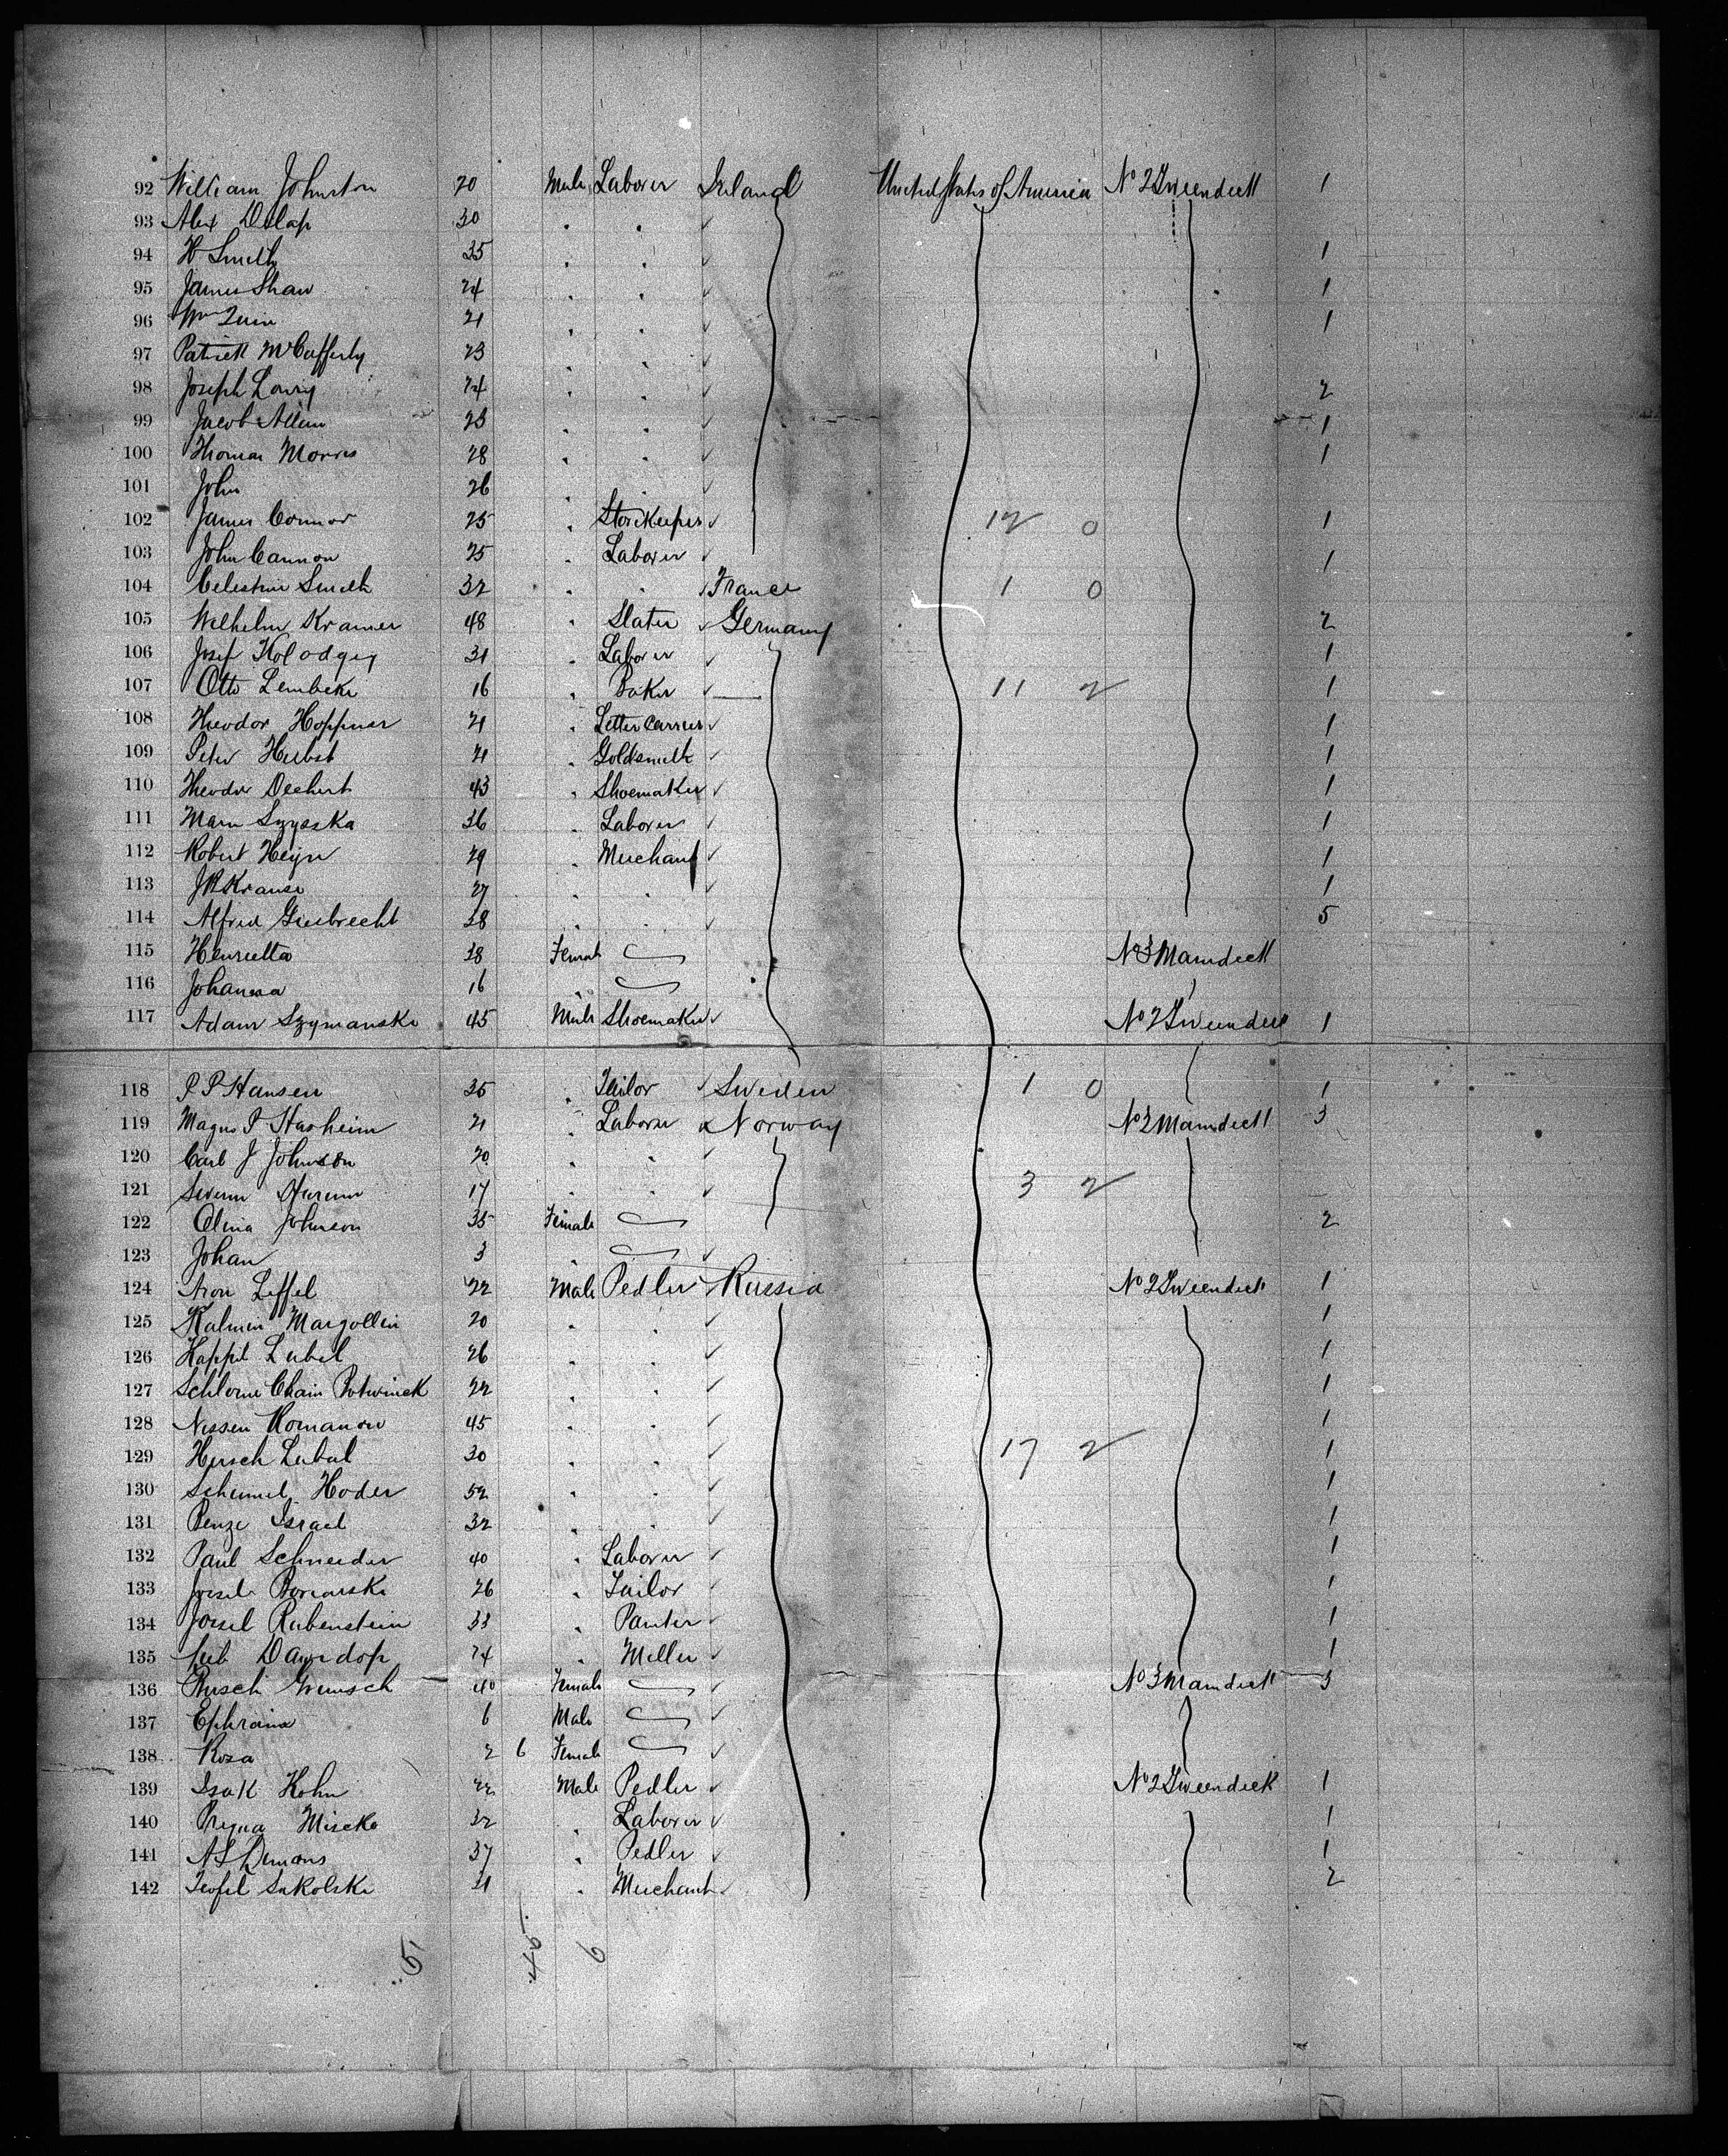 92 William Johnston 20 Male Laborer Ireland United States of America No 2 Tweendeck 1
93 Alex Dslap 30 " "
94 H Smith 35 " " 1
95 James Shaw 24 " " 1
96 Wm Quin 21 " " 1
97 Patrick McCafferty 23 " "
98 Joseph Lowry 24 " " 2
99 Jacob Allen 23 " " 1
100 Thomas Morris 28 " " 1
101 John 26 " "
102 James Connor 25 " Storekeeper 12 0 1
103 John Cannon 25 " Laborer 1
104 Celestine Smith 32 " " France 1 0
105 Wilhelm Kramer 48 " Slater Germany 2
106 Josef Kolodgey 31 " Laborer 1
107 Otto Lembcke 16 " Baker 11 2 1
108 Theodor Hoppner 21 " Letter carrier 1
109 Peter Herbst 21 " Goldsmith 1
110 Theodor Dechert 43 " Shoemaker 1
111 Mam Szyszka 36 " Laborer 1
112 Robert Heyn 29 " Merchant 1
113 JR Krause 27 " " 1
114 Alfred Giesbrecht 38 " " 5
115 Henrietta 38 Female No 3 Maindeck
116 Johanna 16 "
117 Adam Szymanski 45 Male Shoemaker No 2 Tweendeck 1
118 P P Hansen 35 " Tailor Sweden 1 0 1
119 Magns P Hasheim 21 " Laborer Norway No 3 Maindeck 3
120 Carl J Johnson 20 " "
121 Severin 17 " " 3 2
122 Olina Johnson 35 Female 2
123 Johan 3 "
124 Aron Leffel 22 Male Pedler Russia No 2 Tweendeck 1
125 Kalmen Margollin 20 " " 1
126 Happel Lubel 26 " " 1
127 Schlome Chain Potwinek 22 " " 1
128 Nissen Romanow 45 " " 1
129 Hersch Lubal 30 " " 17 2 1
130 Schemel Hoder 52 " " 1
131 Benze Israel 32 " " 1
132 Paul Schneider 40 " Laborer 1
133 Jossel 26 " Tailor 1
134 Jossel Rubenstein 33 " Painter 1
135 Leib 24 " Miller 1
136 40 Female No 3 Maindeck 3
137 Ephraim 6 Male
138 Roza 2 6 Female
139 Isak Kohn 22 Male Pedler No 2 Tweendeck 1
140 Miscke 32 " Laborer 1
141 A S Demans 37 " Pedler 1
142 Teofil Sokolski 31 " Merchant 2
51 45 6